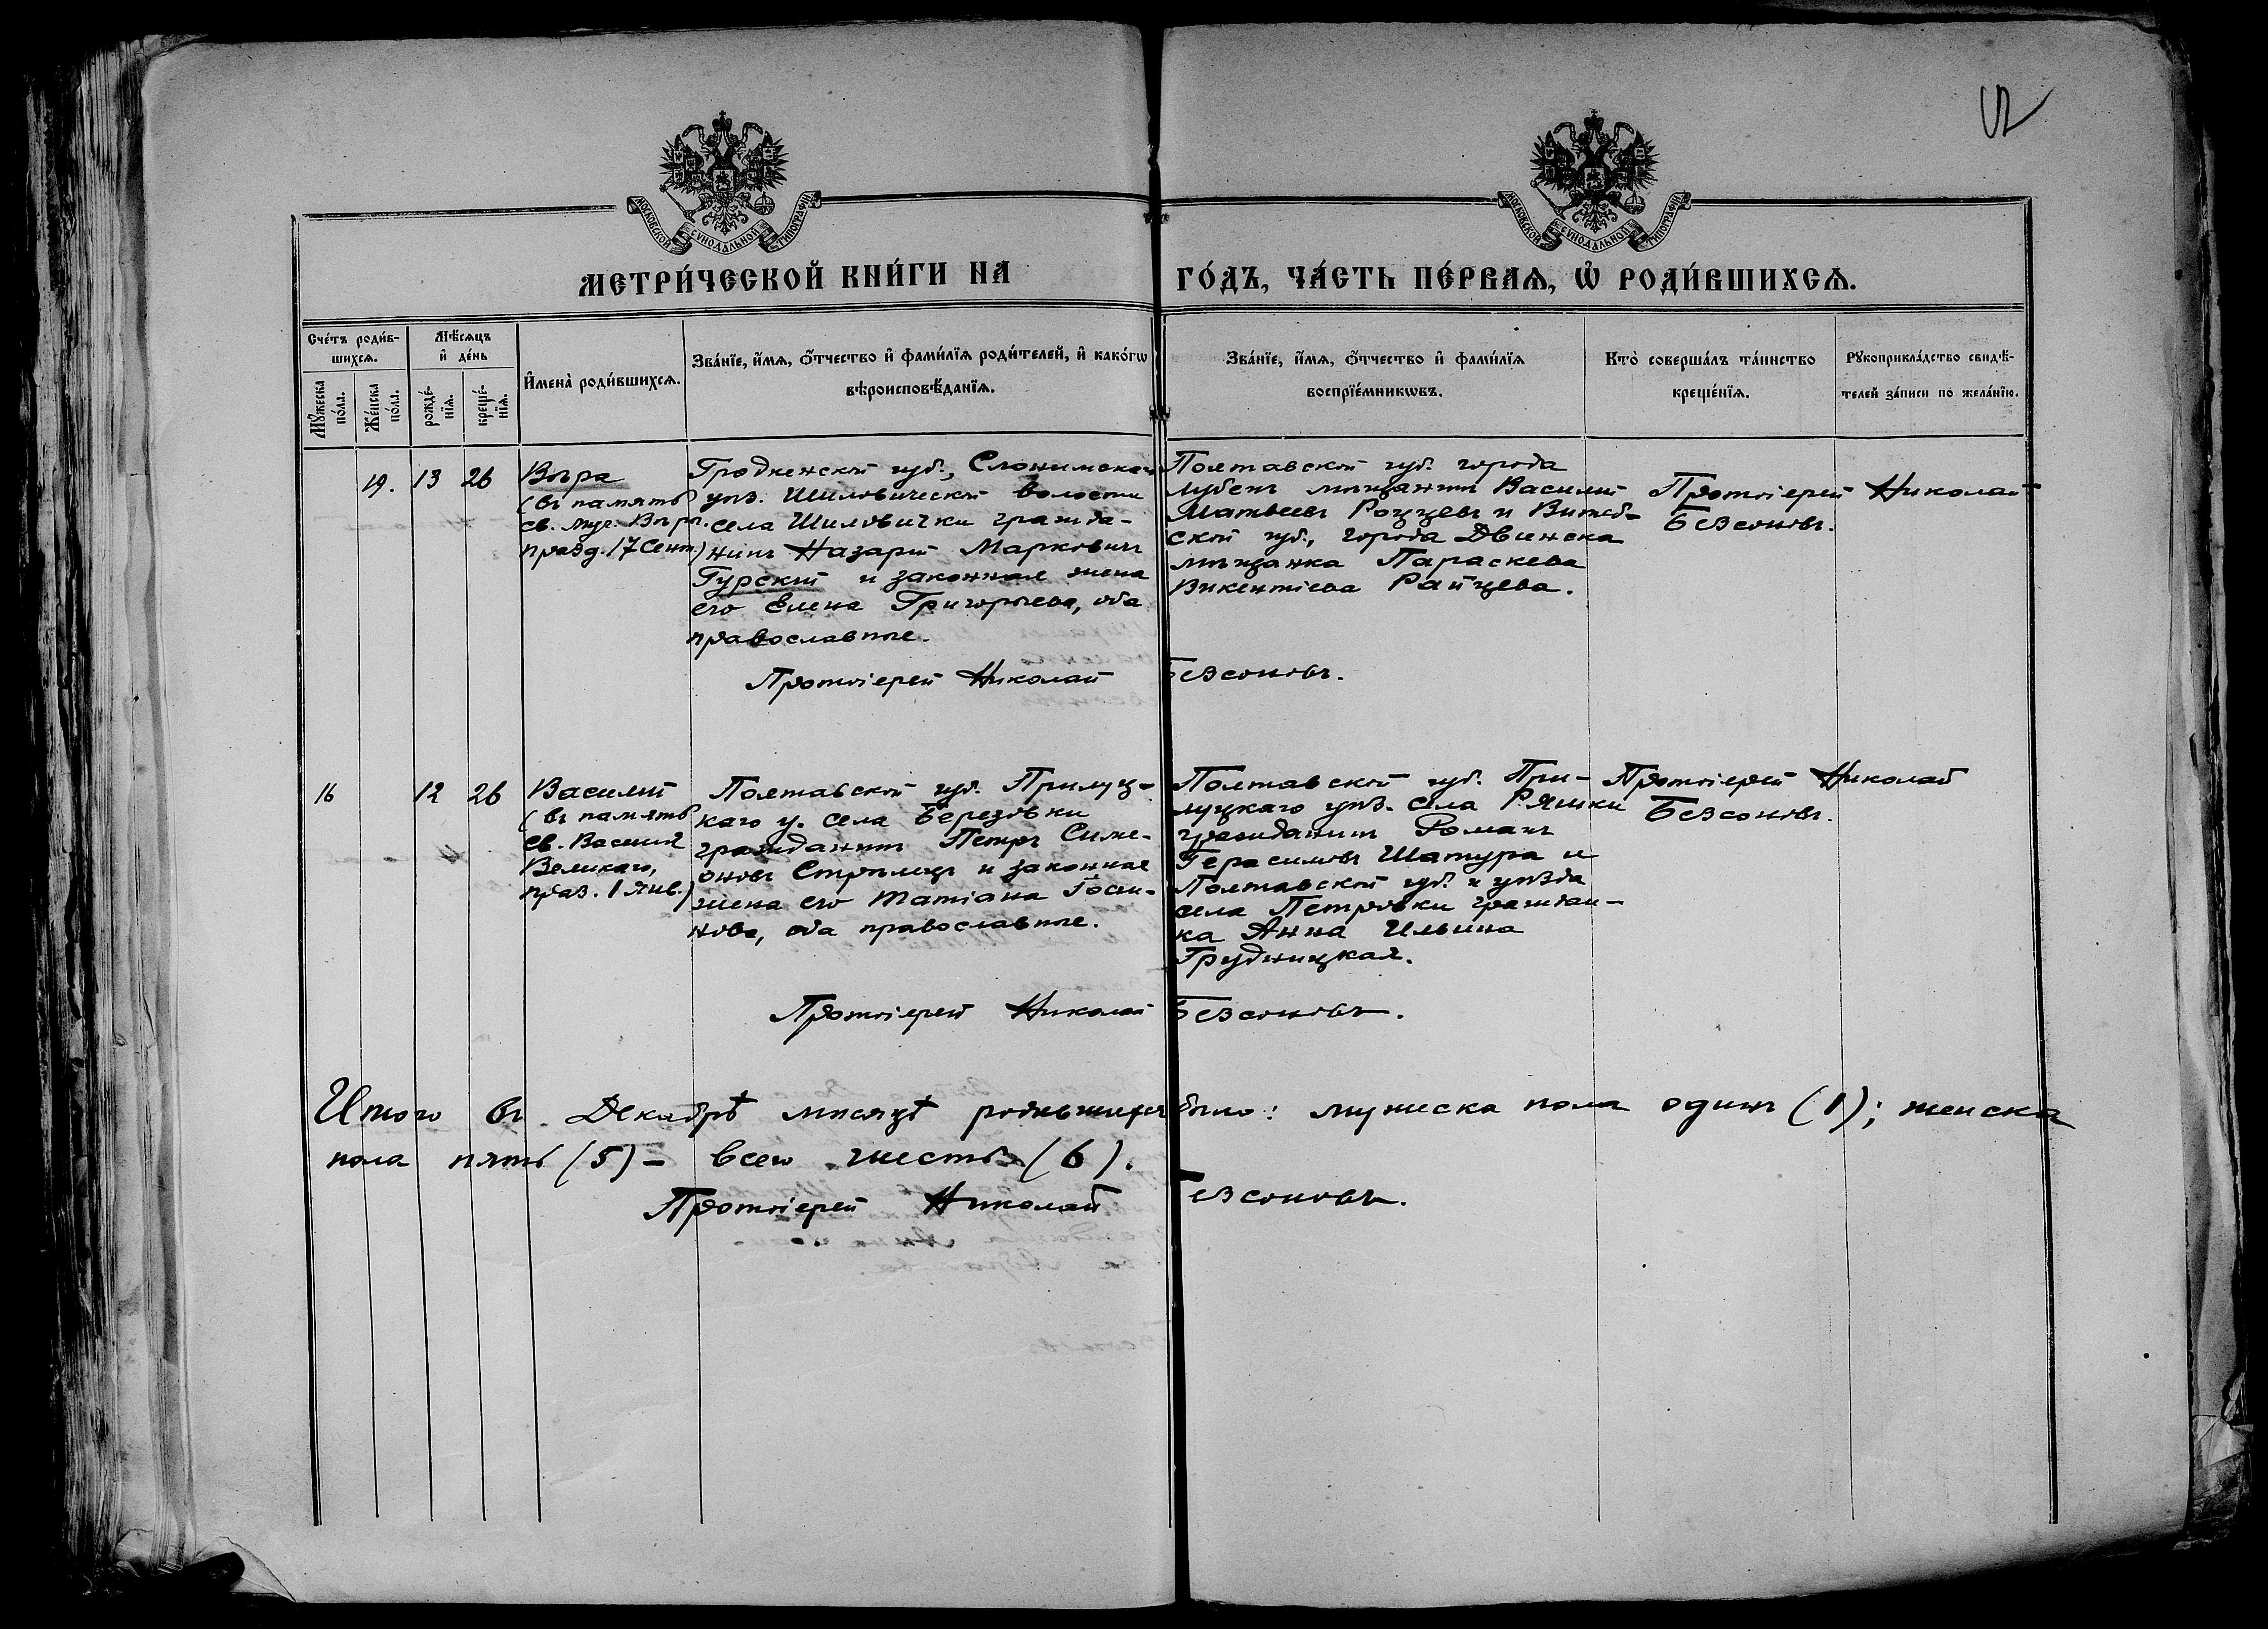 МОСКОВСКОЙ СУНОДАЛЬНОЙ ТИПОГРАФІИ
МОСКОВСКОЙ СУНОДАЛЬНОЙ ТИПОГРАФІИ
МЕТРИ́ЧЕСКОЙ КНИ́ГИ НА ГО́ДЪ, ЧА́СТЬ ПЕ́РВАѦ, Ѡ҆ РОДИ́ВШИХСѦ.
Сче́тъ роди́в-
шихсѧ.
Мѣ́сѧцъ
и҆ де́нь
Мꙋ́жеска
по́ла.
Же́нска
по́ла.
рожде́-
нїѧ.
креще́-
нїѧ.
И҆мена̀ роди́вшихсѧ.
Зва́нїе, и҆́мѧ, ѻ҆́тчество и҆ фами́лїѧ роди́телей, и҆ како́гѡ
вѣроисповѣ́данїѧ.
Зва́нїе, и҆́мѧ, ѻ҆́тчество и҆ фами́лїѧ
воспрїе́мникѡвъ.
Кто̀ соверша́лъ та́инство
креще́нїѧ.
Рꙋкоприкла́дство свидѣ́-
телей за́писи по жела́нїю.
19. 13 26
Вѣра
(въ память
св. муч. Вѣры.
празд. 17 Сент.)
Гродненской губ., Слонимской
уѣз. Шиловической волости
села Шиловички гражда-
нинъ Назарій Марковичъ
Гурскій и законная жена
его Елена Григорьева, оба
православные.
Полтавской губ. города
Лубенъ мѣщанинъ Василій
Матвеевъ Роццевъ и Витеб-
ской губ., города Двинска
мѣщанка Параскева
Викентіева Райцева.
Протоіерей Николай
Безсоновъ.
Протоіерей Николай Безсоновъ.
16 12 26
Василій
(въ память
св. Василія
Великаго,
праз. 1 янв.)
Полтавской губ. Прилуц-
каго у. села Березовки
гражданинъ Петръ Симе-
оновъ Стрѣлецъ и законная
жена его Татіана
оба православные.
Полтавской губ. При-
луцкаго уѣз. села Ряшки
гражданинъ Романъ
Герасимовъ Шатура и
Полтавской губ. и уѣзда
села Петровки граждан-
ка Анна Ильина
Грудницкая.
Протоіерей Николай
Безсоновъ.
Протоіерей Николай Безсоновъ.
Итого въ Декабрѣ мѣсяцѣ родившихся было: мужеска пола одинъ (1); женска
пола пять (5) – всего шесть (6).
Протоіерей Николай Безсоновъ.